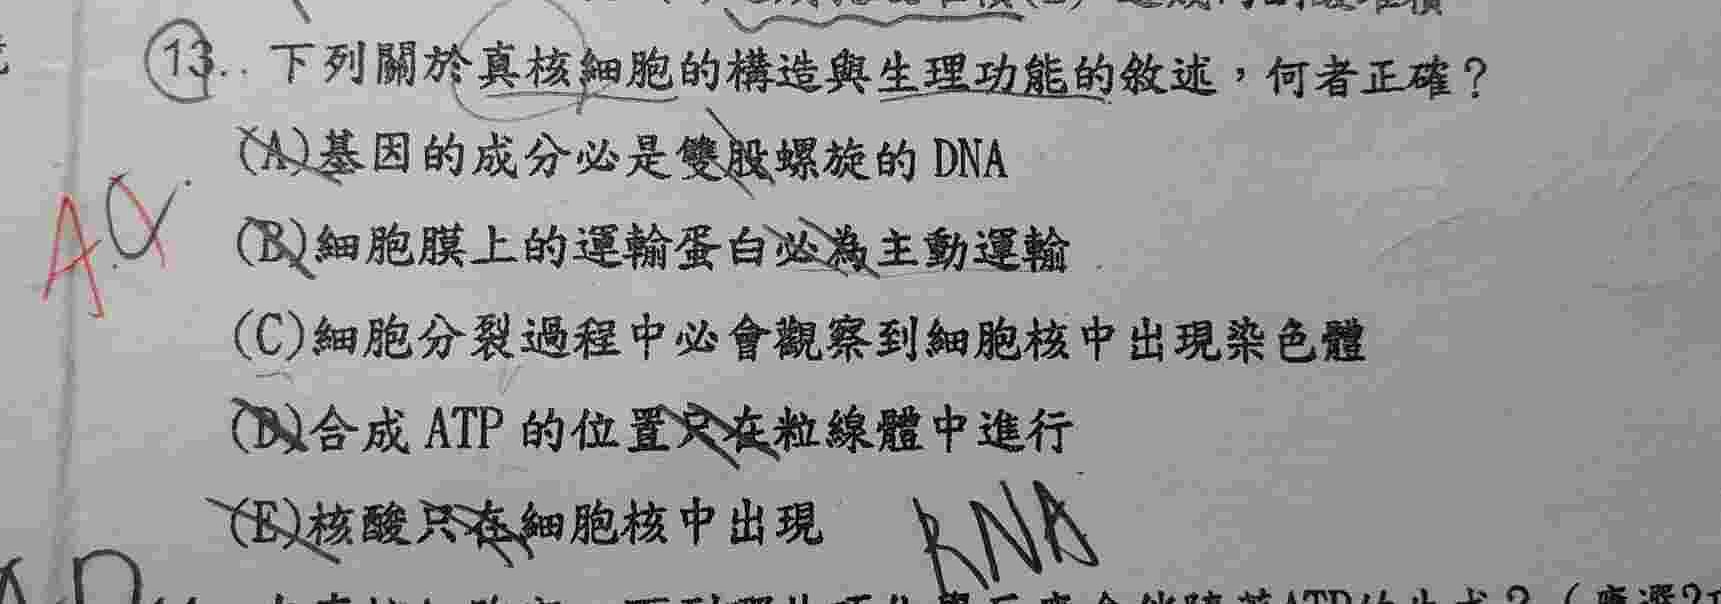 13.. 下列關於真核細胞的構造與生理功能的敘述，何者正確？
(A)基因的成分必是雙股螺旋的 DNA
A
(B)細胞膜上的運輸蛋白必為主動運輸
(C)細胞分裂過程中必會觀察到細胞核中出現染色體
(D)合成 ATP 的位置只在粒線體中進行
(E)核酸只在細胞核中出現
RNA